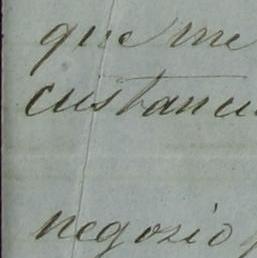 que me
custanci
negozio